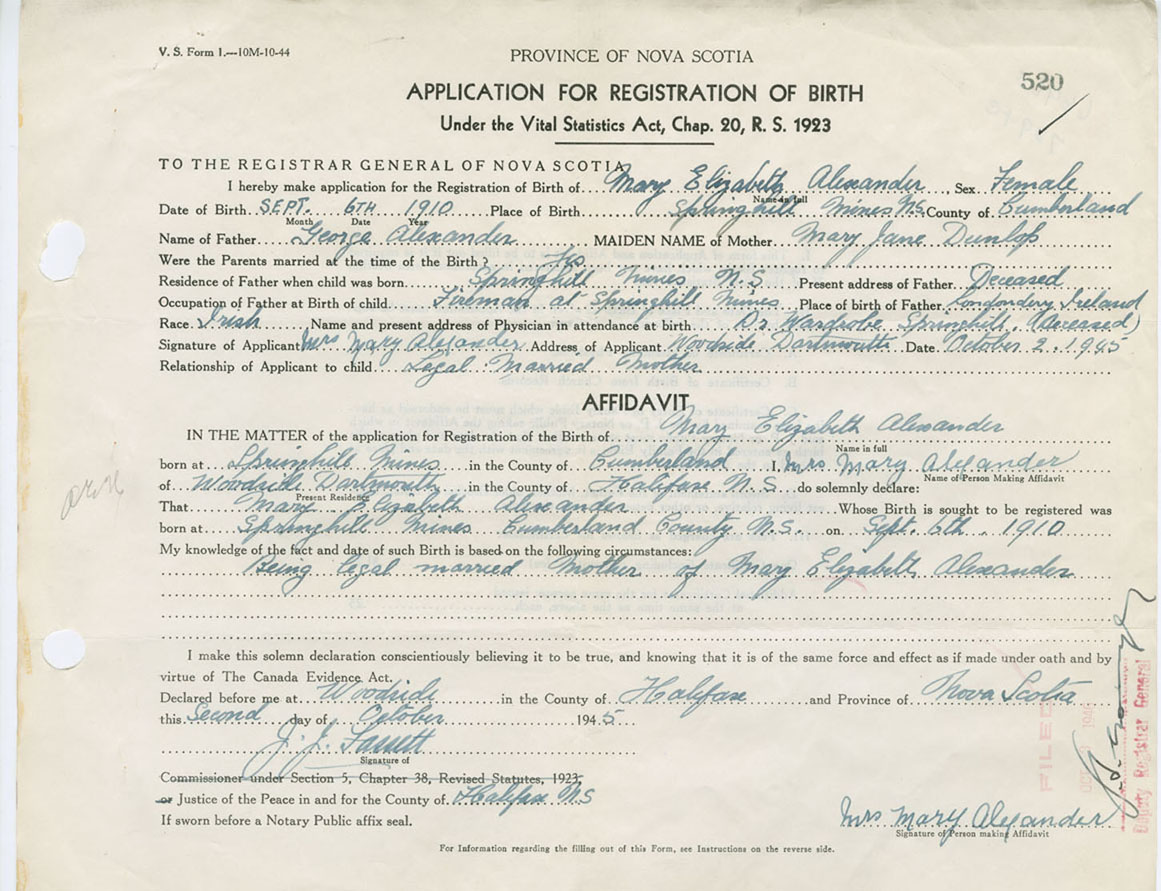 V. S. Form 1.—10M-10-44
PROVINCE OF NOVA SCOTIA
520
APPLICATION FOR REGISTRATION OF BIRTH
Under the Vital Statistics Act, Chap. 20, R. S. 1923
TO THE REGISTRAR GENERAL OF NOVA SCOTIA
I hereby make application for the Registration of Birth of Mary Elizabeth Alexander, Sex Female
Name in full
Date of Birth SEPT. 6TH 1910 Place of Birth Springhill Mines N.S. County of Cumberland
Month Date Year
Name of Father George Alexander MAIDEN NAME of Mother Mary Jane Dunlop
Were the Parents married at the time of the Birth? Yes
Residence of Father when child was born Springhill Mines N.S Present address of Father Deceased
Occupation of Father at Birth of child Fireman at Springhill Mines Place of birth of Father Londondery, Ireland
Race Irish Name and present address of Physician in attendance at birth Dr. Wardrobe Springhill. (deceased)
Signature of Applicant Mrs Mary Alexander Address of Applicant Woodside Dartmouth Date October 2. 1945
Relationship of Applicant to child Legal Married Mother
AFFIDAVIT
IN THE MATTER of the application for Registration of the Birth of Mary Elizabeth Alexander
Name in full
born at Springhill Mines in the County of Cumberland I, Mrs Mary Alexander
Name of Person Making Affidavit
of Woodside Dartmouth in the County of Halifax N.S do solemnly declare:
Present Residence
That Mary Elizabeth Alexander Whose Birth is sought to be registered was
born at Springhill Mines Cumberland County N.S. on Sept. 6th. 1910
My knowledge of the fact and date of such Birth is based on the following circumstances:
Being legal married Mother of Mary Elizabeth Alexander
I make this solemn declaration conscientiously believing it to be true, and knowing that it is of the same force and effect as if made under oath and by
virtue of The Canada Evidence Act.
Declared before me at Woodside in the County of Halifax and Province of Nova Scotia
this Second day of October 1945
Signature of
Commissioner under Section 5, Chapter 38, Revised Statutes, 1923
or Justice of the Peace in and for the County of Halifax N.S
If sworn before a Notary Public affix seal.
Mrs Mary Alexander
Signature of Person making Affidavit
For Information regarding the filling out of this Form, see Instructions on the reverse side.
FILED
OCT
Deputy Registrar General